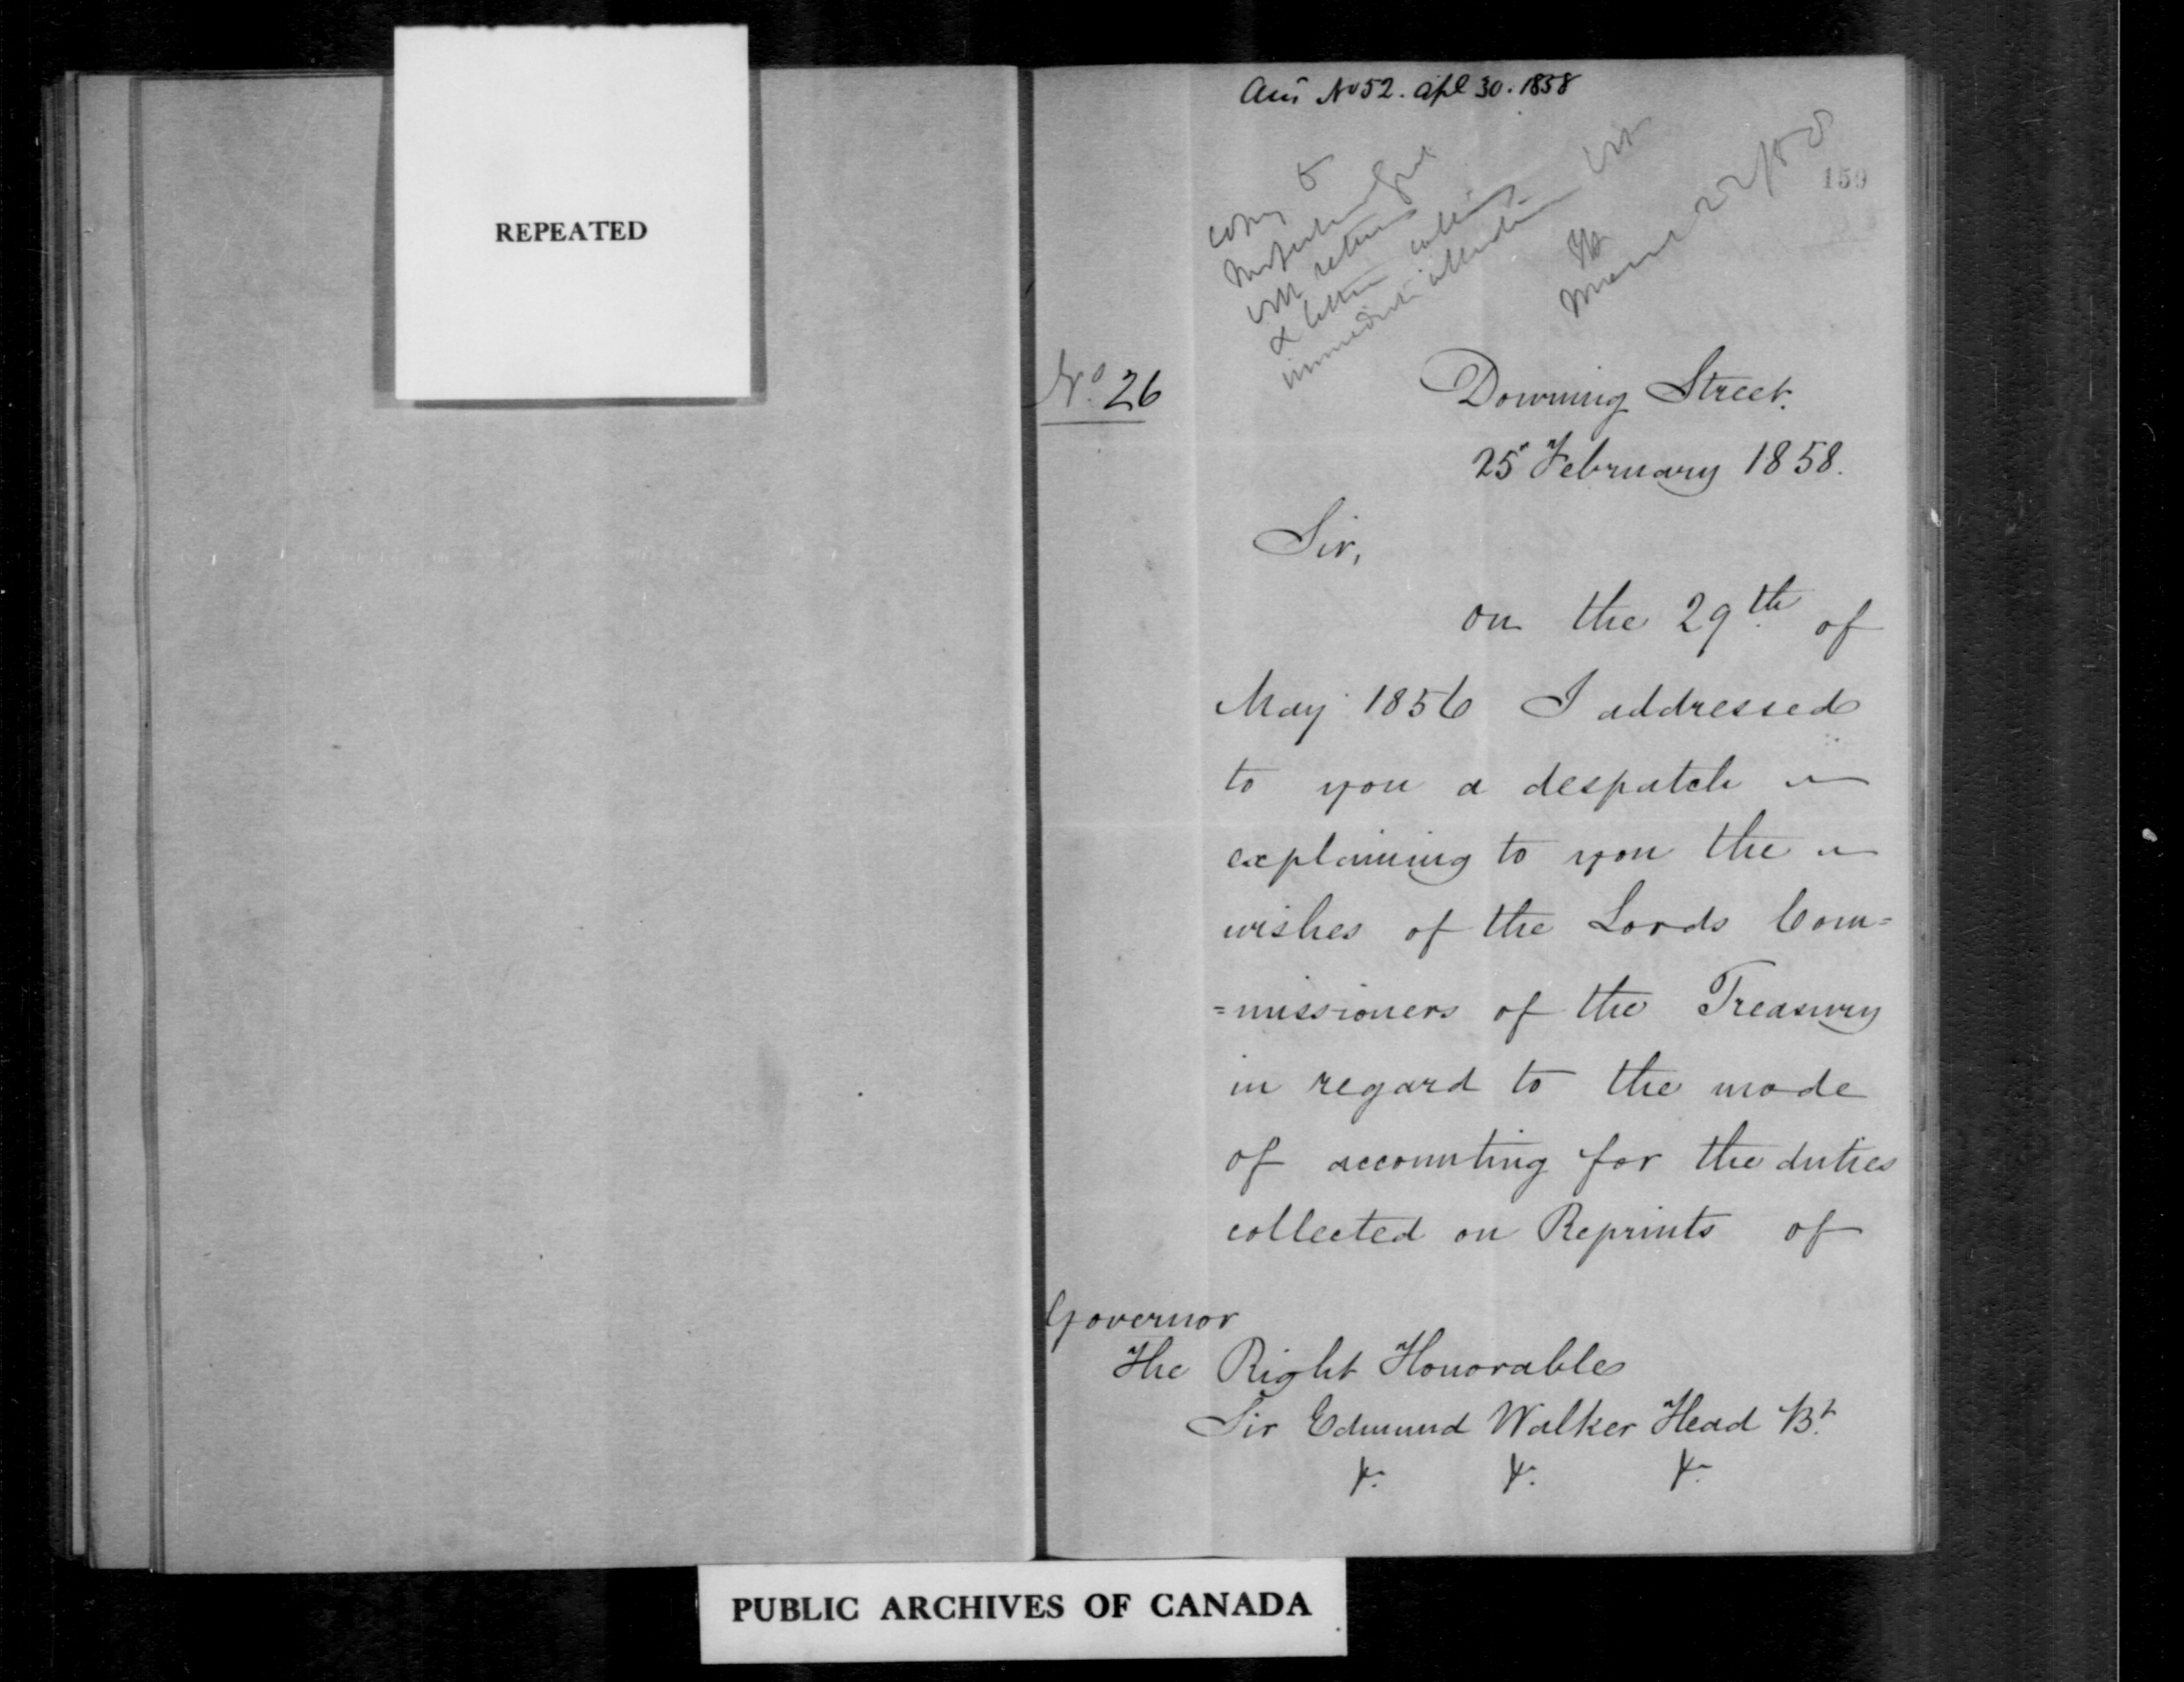 REPEATED
Ans No 52. Apl 30. 1858
159
copy to
with return
& letter calling
immediate attention
No. 26
Downing Street.
25 February 1858.
Sir,
on the 29th of
May 1856 I addressed
to you a despatch
explaining to you the
wishes of the Lords Com=
=missioners of the Treasury
in regard to the mode
of accounting for the duties
collected on Reprints of
Governor
The Right Honorable
Sir Edmund Walker Head Bt.
&c. &c. &c.
PUBLIC ARCHIVES OF CANADA